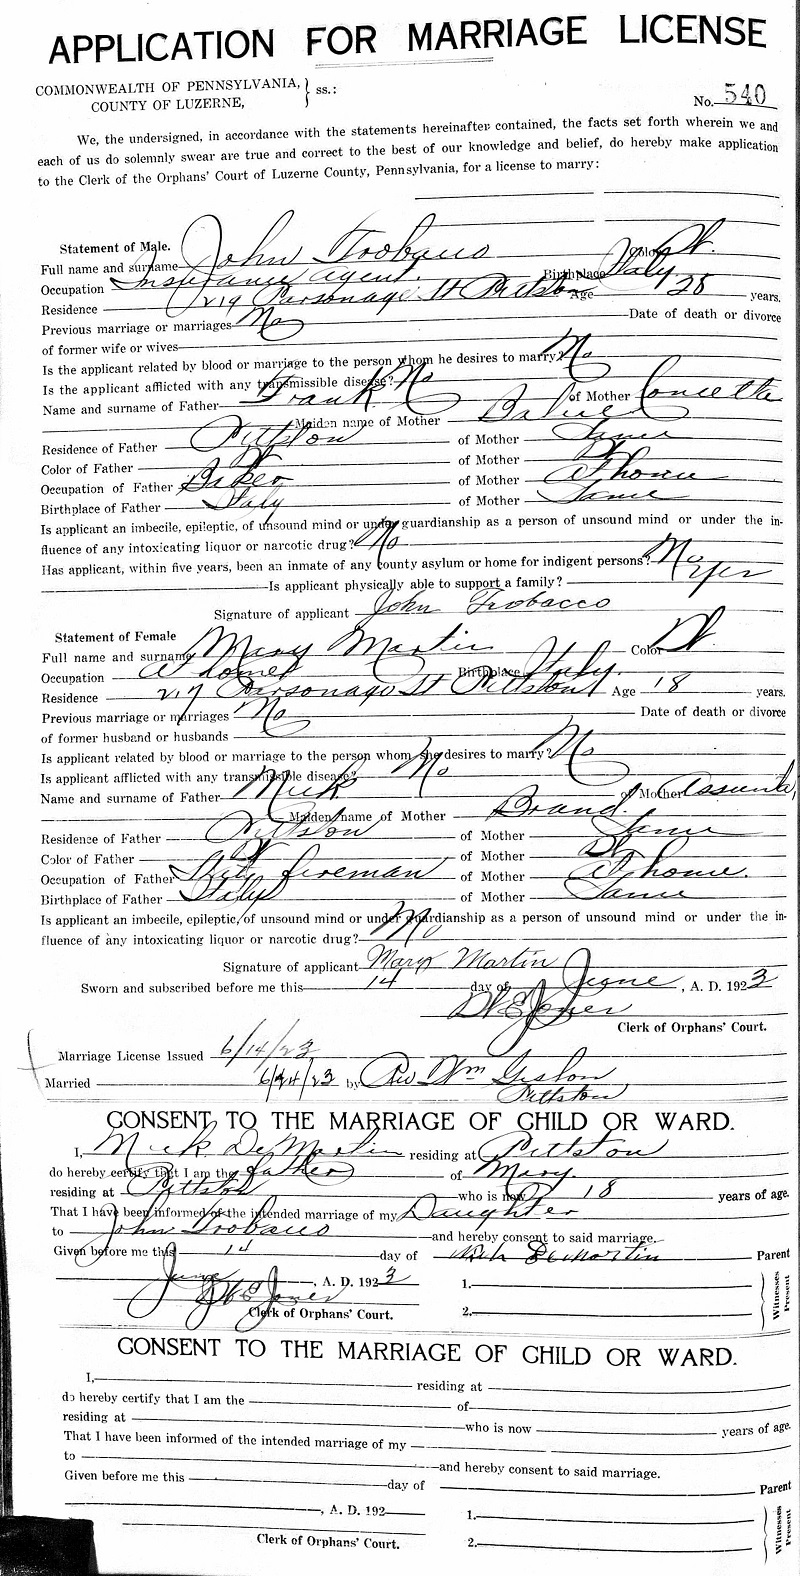 APPLICATION FOR MARRIAGE LICENSE
COMMONWEALTH OF PENNSYLVANIA,
COUNTY OF LUZERNE, } ss.:
No. 540
We, the undersigned, in accordance with the statements hereinafter contained, the facts set forth wherein we and
each of us do solemnly swear are true and correct to the best of our knowledge and belief, do hereby make application
to the Clerk of the Orphans' Court of Luzerne County, Pennsylvania, for a license to marry:
Statement of Male.
Full name and surname John Trobacco Color W.
Occupation Insurance agent. Birthplace Italy
Residence 219 Parsonage St Pittston Age 28 years.
Previous marriage or marriages No Date of death or divorce
of former wife or wives
Is the applicant related by blood or marriage to the person whom he desires to marry? No
Is the applicant afflicted with any transmissible disease? No
Name and surname of Father Frank of Mother Concetta
Maiden name of Mother
Residence of Father Pittston of Mother Same
Color of Father W of Mother W
Occupation of Father Baker of Mother At home
Birthplace of Father Italy of Mother Same
Is applicant an imbecile, epileptic, of unsound mind or under guardianship as a person of unsound mind or under the in-
fluence of any intoxicating liquor or narcotic drug? No
Has applicant, within five years, been an inmate of any county asylum or home for indigent persons? No
Is applicant physically able to support a family? Yes
Signature of applicant John Trobacco
Statement of Female
Full name and surname Mary Martin Color W.
Occupation At home Birthplace Italy.
Residence 217 Parsonage St Pittston Age 18 years.
Previous marriage or marriages No Date of death or divorce
of former husband or husbands
Is applicant related by blood or marriage to the person whom she desires to marry? No
Is applicant afflicted with any transmissible disease? No
Name and surname of Father Nick of Mother Assunta,
Maiden name of Mother Brand.
Residence of Father Pittston of Mother Same
Color of Father W of Mother W
Occupation of Father fireman of Mother At home.
Birthplace of Father Italy of Mother Same
Is applicant an imbecile, epileptic, of unsound mind or under guardianship as a person of unsound mind or under the in-
fluence of any intoxicating liquor or narcotic drug? No
Signature of applicant Mary Martin
Sworn and subscribed before me this 14 day of June, A. D. 1923
W E Jones
Clerk of Orphans' Court.
Marriage License Issued 6/14/23
Married 6/24/23 by Rev Wm Gislon
Pittston
CONSENT TO THE MARRIAGE OF CHILD OR WARD.
I, Nick DeMartin residing at Pittston
do hereby certify that I am the father of Mary.
residing at Pittston who is now 18 years of age.
That I have been informed of the intended marriage of my Daughter
to John Trobacco and hereby consent to said marriage.
Given before me this 14 day of Nick DeMartin Parent
June, A. D. 1923 1.
W E Jones
Clerk of Orphans' Court. 2.
Witnesses Present
CONSENT TO THE MARRIAGE OF CHILD OR WARD.
I, residing at
do hereby certify that I am the of
residing at who is now years of age.
That I have been informed of the intended marriage of my
to and hereby consent to said marriage.
Given before me this day of Parent
, A. D. 192 1.
Clerk of Orphans' Court. 2.
Witnesses Present